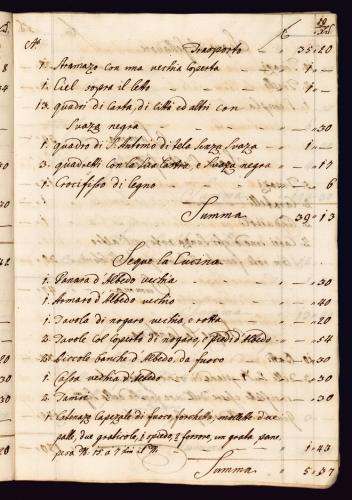 19
Nº Trasporto 35 » 20
1. Stramazo con una vechia coperta » 1 » —
1. Ciel sopra il letto » 1 » —
13. quadri di carta, di città ed altri con
Suaza negra » » 30
1. quadro di S. Antonio di tela senza Suaza » 1 » —
3. quadretti con la sua lastra, e Suaza negra » » 17
1. Crocifisso di legno » » 6
Summa 39 » 13
Segue la Cucina
1. Panara d'Albedo vechia » 30
1. Armaro d'Albedo vechio » 40
1. Tavola di nogaro vechia, e rotta » 20
2. Tavole col coperto di nogaro, e piedi d'Albedo » 54
2. Piccole banche d'Albedo, da fuoco » 30
1. Cassa vechia d'Albedo » 30
2. Tamisi » 30
1. Cadenazo Capezal di fuoco, forchetta, molette due
palle, due graticole, 1 spiedo, 1 forroro, un grata pane
pesa 1 » 43
Summa 5 » 37